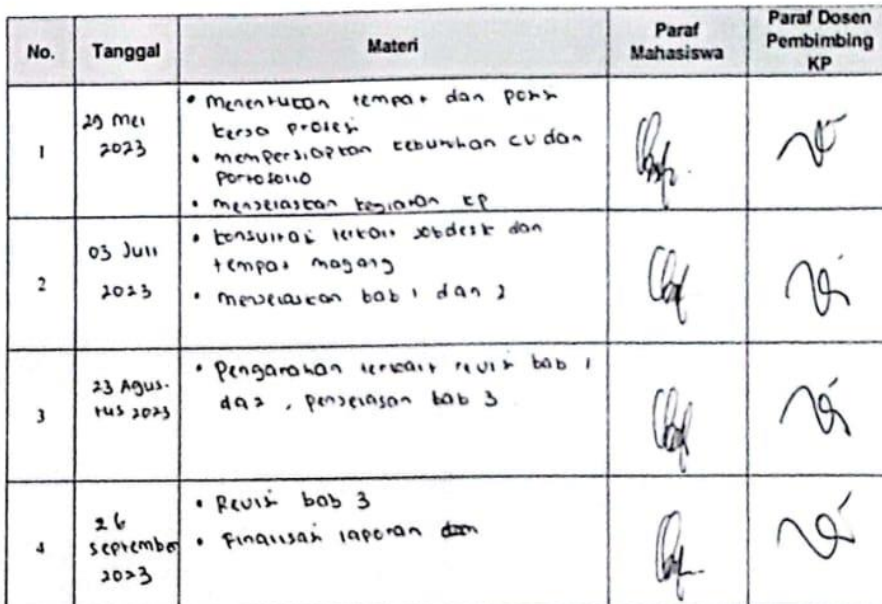 No. Tanggal Materi Paraf Mahasiswa Paraf Dosen Pembimbing KP
1
29 Mei
2023
• Menentukan tempat dan posisi
kerja profesi
• mempersiapkan kebutuhan CV dan
portofolio
• menjelaskan kegiatan KP
2
03 Juli
2023
• konsultasi terkait jobdesk dan
tempat magang
• menjelaskan bab 1 dan 2
3
23 Agus-
tus 2023
• Pengarahan terkait revisi bab 1
da2, penjelasan bab 3
4
26
September
2023
• Revisi bab 3
• Finalisasi laporan